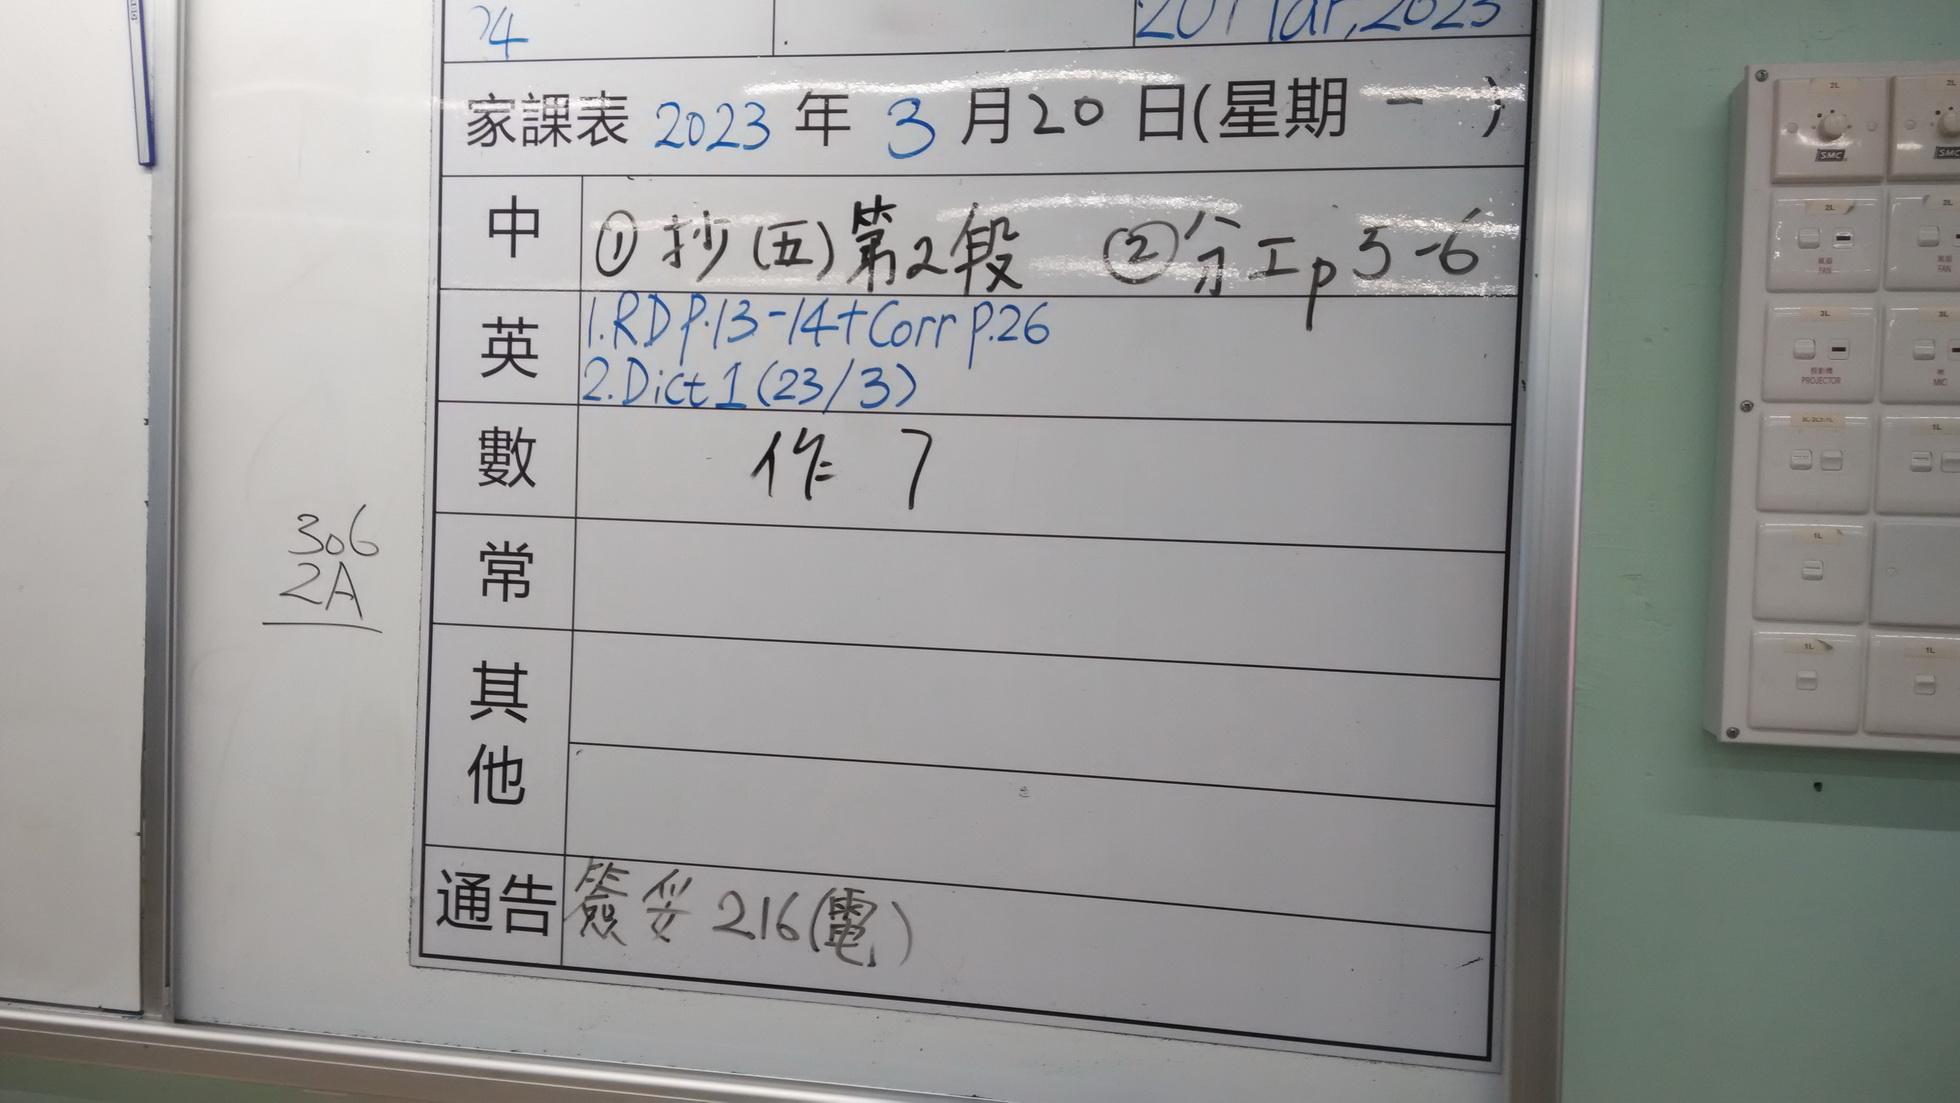 24
20 Mar, 2023
家課表 2023 年 3 月 20 日(星期 一 )
中 ① 抄(五)第2段 ② 分工p 5-6
英 1. RD p.13-14 + Corr p.26
2. Dict 1 (23/3)
數 作 7
常
其他
通告 簽妥 216(電)
306
2A
2L
SMC
2L
SMC
2L
風扇
FAN
2L
風扇
FAN
3L
投影機
PROJECTOR
3L
MIC
1L
1L
1L
1L